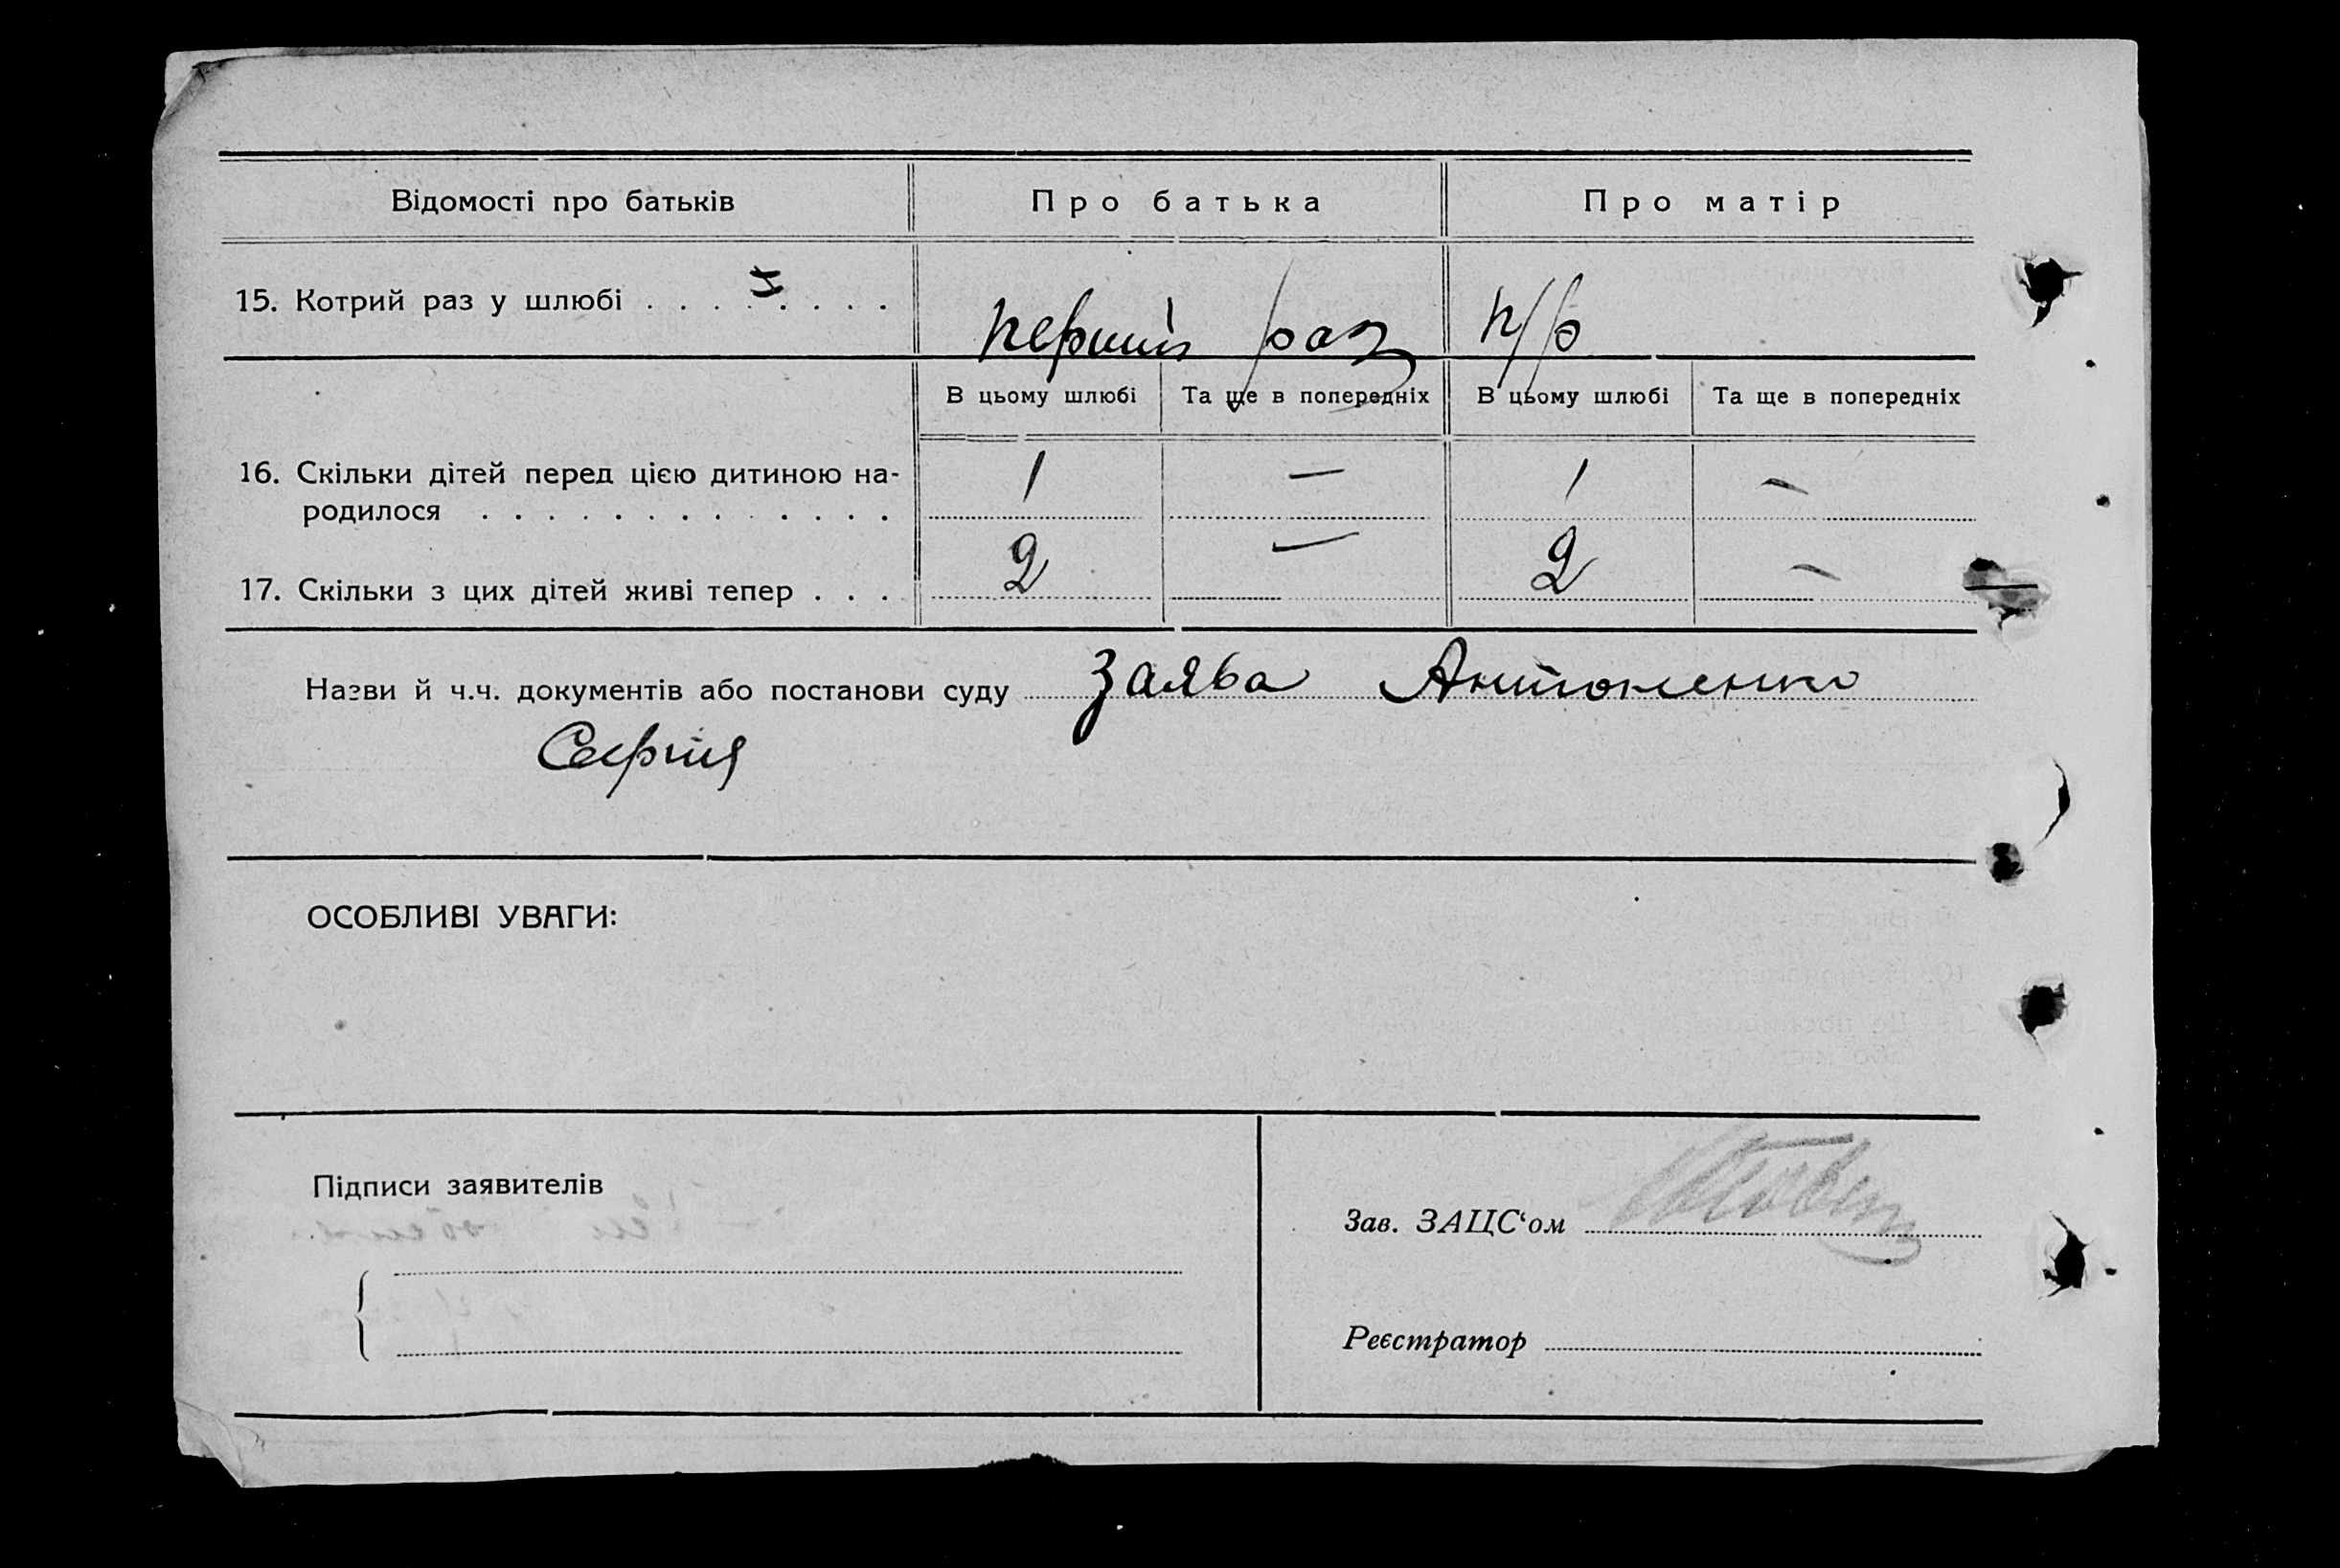 Відомості про батьків Про батька Про матір
15. Котрий раз у шлюбі . . . . . . . . перший раз п/р
В цьому шлюбі Та ще в попередніх В цьому шлюбі Та ще в попередніх
16. Скільки дітей перед цією дитиною на-
родилося . . . . . . . . . . . . . 1 — 1 —
17. Скільки з цих дітей живі тепер . . . 2 — 2 —
Назви й ч.ч. документів або постанови суду заява Антоненко
Сергія
ОСОБЛИВІ УВАГИ:
Підписи заявителів
Зав. ЗАЦС‘ом
Реєстратор